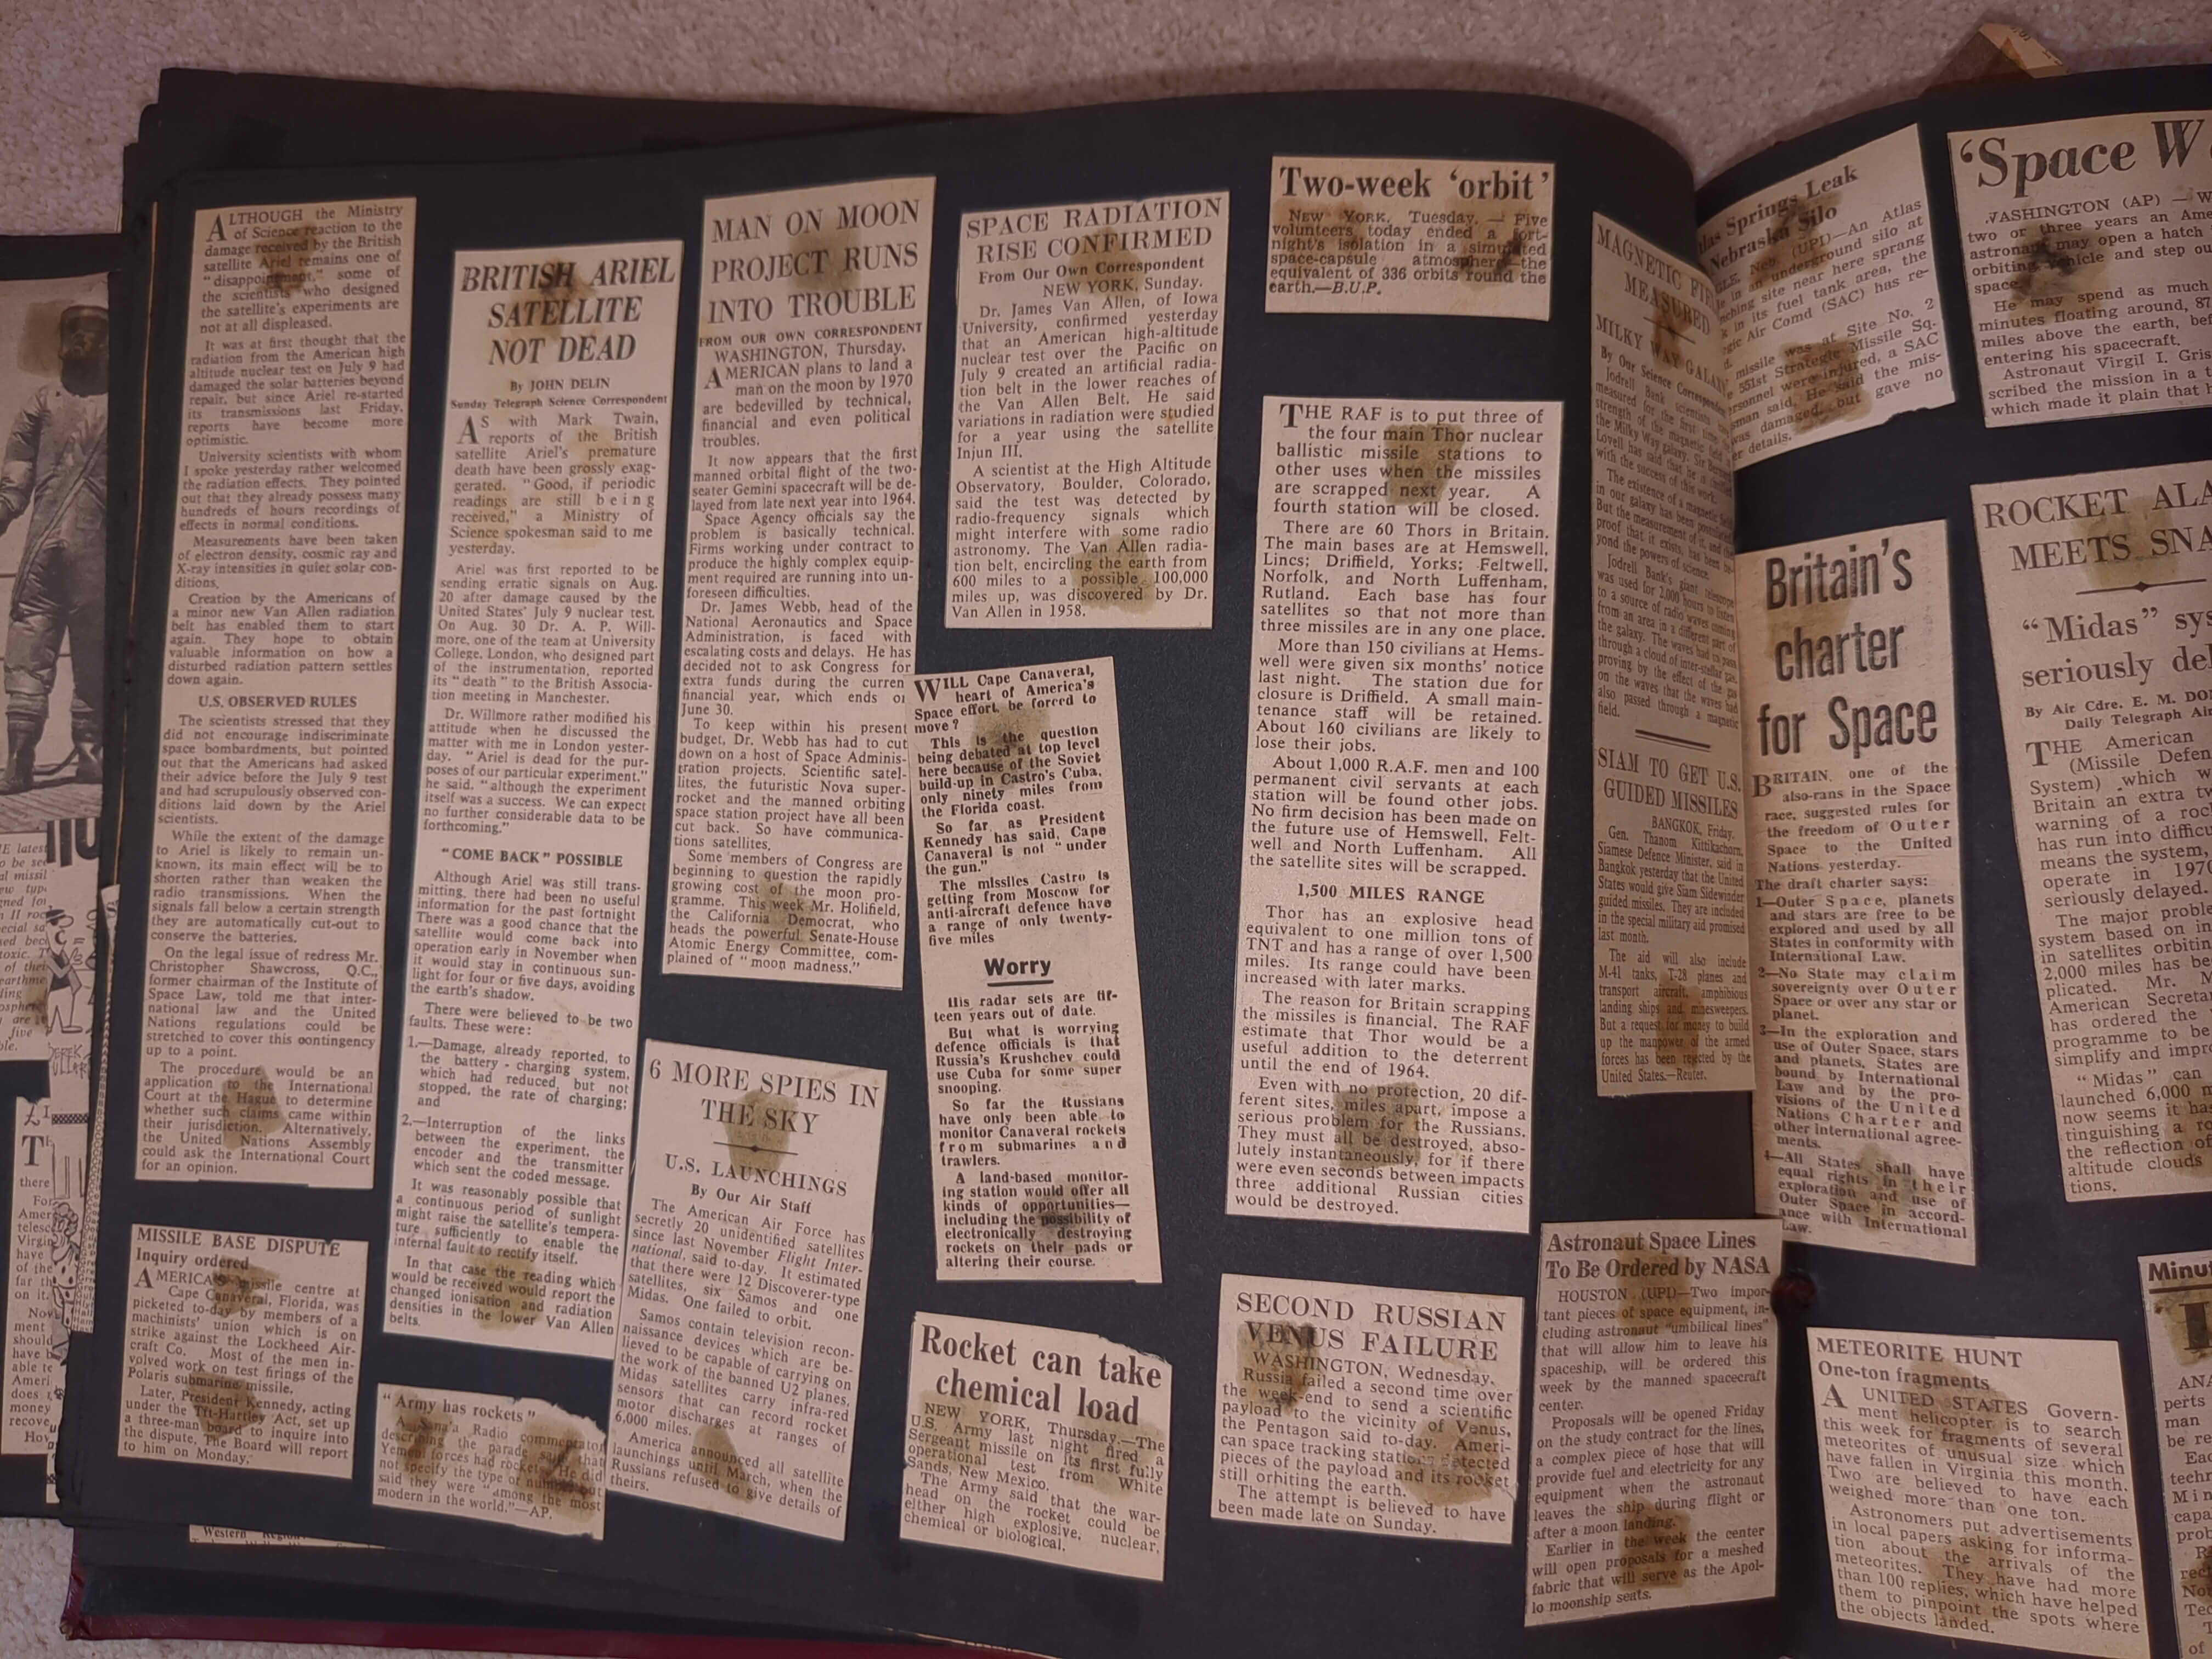 ALTHOUGH the Ministry
of Science reaction to the
damage received by the British
satellite Ariel remains one of
"disappointment," some of
the scientists who designed
the satellite's experiments are
not at all displeased.
It was at first thought that the
radiation from the American high
altitude nuclear test on July 9 had
damaged the solar batteries beyond
repair, but since Ariel re-started
its transmissions last Friday,
reports have become more
optimistic.
University scientists with whom
I spoke yesterday rather welcomed
the radiation effects. They pointed
out that they already possess many
hundreds of hours recordings of
effects in normal conditions.
Measurements have been taken
of electron density, cosmic ray and
X-ray intensities in quiet solar con-
ditions.
Creation by the Americans of
a minor new Van Allen radiation
belt has enabled them to start
again. They hope to obtain
valuable information on how a
disturbed radiation pattern settles
down again.
U.S. OBSERVED RULES
The scientists stressed that they
did not encourage indiscriminate
space bombardments, but pointed
out that the Americans had asked
their advice before the July 9 test
and had scrupulously observed con-
ditions laid down by the Ariel
scientists.
While the extent of the damage
to Ariel is likely to remain un-
known, its main effect will be to
shorten rather than weaken the
radio transmissions. When the
signals fall below a certain strength
they are automatically cut-out to
conserve the batteries.
On the legal issue of redress Mr.
Christopher Shawcross, Q.C.,
former chairman of the Institute of
Space Law, told me that inter-
national law and the United
Nations regulations could be
stretched to cover this contingency
up to a point.
The procedure would be an
application to the International
Court at the Hague to determine
whether such claims came within
their jurisdiction. Alternatively,
the United Nations Assembly
could ask the International Court
for an opinion.
MISSILE BASE DISPUTE
Inquiry ordered
AMERICA'S missile centre at
Cape Canaveral, Florida, was
picketed to-day by members of a
machinists' union which is on
strike against the Lockheed Air-
craft Co. Most of the men in-
volved work on test firings of the
Polaris submarine missile.
Later, President Kennedy, acting
under the Tft-Hartley Act, set up
a three-man board to inquire into
the dispute. The Board will report
to him on Monday.
BRITISH ARIEL
SATELLITE
NOT DEAD
By JOHN DELIN
Sunday Telegraph Science Correspondent
AS with Mark Twain,
reports of the British
satellite Ariel's premature
death have been grossly exag-
gerated. "Good, if periodic
readings are still being
received," a Ministry of
Science spokesman said to me
yesterday.
Ariel was first reported to be
sending erratic signals on Aug.
20 after damage caused by the
United States' July 9 nuclear test.
On Aug. 30 Dr. A. P. Will-
more, one of the team at University
College, London, who designed part
of the instrumentation, reported
its "death" to the British Associa-
tion meeting in Manchester.
Dr. Willmore rather modified his
attitude when he discussed the
matter with me in London yester-
day. "Ariel is dead for the pur-
poses of our particular experiment,"
he said, "although the experiment
itself was a success. We can expect
no further considerable data to be
forthcoming."
"COME BACK" POSSIBLE
Although Ariel was still trans-
mitting, there had been no useful
information for the past fortnight
There was a good chance that the
satellite would come back into
operation early in November when
it would stay in continuous sun-
light for four or five days, avoiding
the earth's shadow.
There were believed to be two
faults. These were:
1.—Damage, already reported, to
the battery-charging system,
which had reduced, but not
stopped, the rate of charging;
and
2.—Interruption of the links
between the experiment, the
encoder and the transmitter
which sent the coded message.
It was reasonably possible that
a continuous period of sunlight
might raise the satellite's tempera-
ture sufficiently to enable the
internal fault to rectify itself.
In that case the reading which
would be received would report the
changed ionisation and radiation
densities in the lower Van Allen
belts.
"Army has rockets"
A Sana'a Radio commentator
describing the parade said that
Yemeni forces had rockets. He did
not specify the type or number but
said they were "among the most
modern in the world."—AP.
MAN ON MOON
PROJECT RUNS
INTO TROUBLE
FROM OUR OWN CORRESPONDENT
WASHINGTON, Thursday.
AMERICAN plans to land a
man on the moon by 1970
are bedevilled by technical,
financial and even political
troubles.
It now appears that the first
manned orbital flight of the two-
seater Gemini spacecraft will be de-
layed from late next year into 1964.
Space Agency officials say the
problem is basically technical.
Firms working under contract to
produce the highly complex equip-
ment required are running into un-
foreseen difficulties.
Dr. James Webb, head of the
National Aeronautics and Space
Administration, is faced with
escalating costs and delays. He has
decided not to ask Congress for
extra funds during the curren
financial year, which ends or
June 30.
To keep within his present
budget, Dr. Webb has had to cut
down on a host of Space Adminis-
tration projects. Scientific satel-
lites, the futuristic Nova super-
rocket and the manned orbiting
space station project have all been
cut back. So have communica-
tions satellites.
Some members of Congress are
beginning to question the rapidly
growing cost of the moon pro-
gramme. This week Mr. Holifield,
the California Democrat, who
heads the powerful Senate-House
Atomic Energy Committee, com-
plained of "moon madness."
6 MORE SPIES IN
THE SKY
U.S. LAUNCHINGS
By Our Air Staff
The American Air Force has
secretly 20 unidentified satellites
since last November Flight Inter-
national, said to-day. It estimated
that there were 12 Discoverer-type
satellites, six Samos and one
Midas. One failed to orbit.
Samos contain television recon-
naissance devices which are be-
lieved to be capable of carrying on
the work of the banned U2 planes.
Midas satellites carry infra-red
sensors that can record rocket
motor discharges at ranges of
6,000 miles.
America announced all satellite
launchings until March, when the
Russians refused to give details of
theirs.
SPACE RADIATION
RISE CONFIRMED
From Our Own Correspondent
NEW YORK, Sunday.
Dr. James Van Allen, of Iowa
University, confirmed yesterday
that an American high-altitude
nuclear test over the Pacific on
July 9 created an artificial radia-
tion belt in the lower reaches of
the Van Allen Belt. He said
variations in radiation were studied
for a year using the satellite
Injun III.
A scientist at the High Altitude
Observatory, Boulder, Colorado,
said the test was detected by
radio-frequency signals which
might interfere with some radio
astronomy. The Van Allen radia-
tion belt, encircling the earth from
600 miles to a possible 100,000
miles up, was discovered by Dr.
Van Allen in 1958.
WILL Cape Canaveral,
heart of America's
Space effort, be forced to
move?
This is the question
being debated at top level
here because of the Soviet
build-up in Castro's Cuba,
only ninety miles from
the Florida coast.
So far as President
Kennedy has said, Cape
Canaveral is not "under
the gun."
The missiles Castro is
getting from Moscow for
anti-aircraft defence have
a range of only twenty-
five miles
Worry
His radar sets are fif-
teen years out of date.
But what is worrying
defence officials is that
Russia's Krushchev could
use Cuba for some super
snooping.
So far the Russians
have only been able to
monitor Canaveral rockets
from submarines and
trawlers.
A land-based monitor-
ing station would offer all
kinds of opportunities—
including the possibility of
electronically destroying
rockets on their pads or
altering their course.
Rocket can take
chemical load
NEW YORK, Thursday.—The
U.S. Army last night fired a
Sergeant missile on its first fully
operational test from White
Sands, New Mexico.
The Army said that the war-
head on the rocket could be
either high explosive, nuclear,
chemical or biological.
Two-week 'orbit'
NEW YORK, Tuesday.—Five
volunteers today ended a fort-
night's isolation in a simulated
space-capsule atmosphere—the
equivalent of 336 orbits round the
earth.—B.U.P.
THE RAF is to put three of
the four main Thor nuclear
ballistic missile stations to
other uses when the missiles
are scrapped next year. A
fourth station will be closed.
There are 60 Thors in Britain.
The main bases are at Hemswell,
Lincs; Driffield, Yorks; Feltwell,
Norfolk, and North Luffenham,
Rutland. Each base has four
satellites so that not more than
three missiles are in any one place.
More than 150 civilians at Hems-
well were given six months' notice
last night. The station due for
closure is Driffield. A small main-
tenance staff will be retained.
About 160 civilians are likely to
lose their jobs.
About 1,000 R.A.F. men and 100
permanent civil servants at each
station will be found other jobs.
No firm decision has been made on
the future use of Hemswell, Felt-
well and North Luffenham. All
the satellite sites will be scrapped.
1,500 MILES RANGE
Thor has an explosive head
equivalent to one million tons of
TNT and has a range of over 1,500
miles. Its range could have been
increased with later marks.
The reason for Britain scrapping
the missiles is financial. The RAF
estimate that Thor would be a
useful addition to the deterrent
until the end of 1964.
Even with no protection, 20 dif-
ferent sites, miles apart, impose a
serious problem for the Russians.
They must all be destroyed, abso-
lutely instantaneously, for if there
were even seconds between impacts
three additional Russian cities
would be destroyed.
SECOND RUSSIAN
VENUS FAILURE
WASHINGTON, Wednesday.
Russia failed a second time over
the week-end to send a scientific
payload to the vicinity of Venus,
the Pentagon said to-day. Ameri-
can space tracking stations detected
pieces of the payload and its rocket
still orbiting the earth.
The attempt is believed to have
been made late on Sunday.
MAGNETIC FIE
MEASURED
MILKY WAY GALAXY
By Our Science Correspondent
Jodrell Bank scientists have
measured for the first time the
strength of the magnetic field in
the Milky Way galaxy. Sir Bernard
Lovell has said that he is
with the success of this work.
The existence of a magnetic field
in our galaxy has been postulated
But the measurement of it, and the
proof that it exists, has been be-
yond the powers of science.
Jodrell Bank's giant telescope
was used for 2,000 hours to listen
to a source of radio waves coming
from an area in a different part of
the galaxy. The waves had to pass
through a cloud of inter-stellar gas,
proving by the effect of the gas
on the waves that the waves had
also passed through a magnetic
field.
SIAM TO GET U.S.
GUIDED MISSILES
BANGKOK, Friday.
Gen. Thanom Kittikachorn,
Siamese Defence Minister, said in
Bangkok yesterday that the United
States would give Siam Sidewinder
guided missiles. They are included
in the special military aid promised
last month.
The aid will also include
M-41 tanks, T-28 planes and
transport aircraft, amphibious
landing ships and minesweepers.
But a request for money to build
up the manpower of the armed
forces has been rejected by the
United States.—Reuter.
Astronaut Space Lines
To Be Ordered by NASA
HOUSTON (UPI)—Two impor-
tant pieces of space equipment, in-
cluding astronaut "umbilical lines"
that will allow him to leave his
spaceship, will be ordered this
week by the manned spacecraft
center.
Proposals will be opened Friday
on the study contract for the lines,
a complex piece of hose that will
provide fuel and electricity for any
equipment when the astronaut
leaves the ship during flight or
after a moon landing.
Earlier in the week the center
will open proposals for a meshed
fabric that will serve as the Apol-
lo moonship seats.
las Springs Leak
Nebraska Silo
Neb. (UPI)—An Atlas
in an underground silo at
ching site near here sprang
k in its fuel tank area, the
gic Air Comd (SAC) has re-
missile was at Site No. 2
551st Strategic Missile Sq.
ersonnel were injured, a SAC
sman said. He said the mis-
was damaged, but gave no
er details.
Britain's
charter
for Space
BRITAIN, one of the
also-rans in the Space
race, suggested rules for
the freedom of Outer
Space to the United
Nations yesterday.
The draft charter says:
1—Outer Space, planets
and stars are free to be
explored and used by all
States in conformity with
International Law.
2—No State may claim
sovereignty over Outer
Space or over any star or
planet.
3—In the exploration and
use of Outer Space, stars
and planets, States are
bound by International
Law and by the pro-
visions of the United
Nations Charter and
other international agree-
ments.
4—All States shall have
equal rights in their
exploration and use of
Outer Space in accord-
ance with International
Law.
METEORITE HUNT
One-ton fragments
A UNITED STATES Govern-
ment helicopter is to search
this week for fragments of several
meteorites of unusual size which
have fallen in Virginia this month.
Two are believed to have each
weighed more than one ton.
Astronomers put advertisements
in local papers asking for informa-
tion about the arrivals of the
meteorites. They have had more
than 100 replies, which have helped
them to pinpoint the spots where
the objects landed.
'Space W
WASHINGTON (AP) — W
two or three years an Ame
astronaut may open a hatch
orbiting vehicle and step ou
space.
He may spend as much
minutes floating around, 87
miles above the earth, bef
entering his spacecraft.
Astronaut Virgil I. Gris
scribed the mission in a t
which made it plain that h
ROCKET ALA
MEETS SNA
"Midas" sys
seriously del
By Air Cdre. E. M. DO
Daily Telegraph Air
THE American
(Missile Defen
System) which w
Britain an extra tw
warning of a roc
has run into difficu
means the system,
operate in 1970
seriously delayed.
The major proble
system based on in
in satellites orbitin
2,000 miles has be
plicated. Mr. M
American Secreta
has ordered the
programme to be
simplify and impr
"Midas" can
launched 6,000 m
now seems it ha
tinguishing a ro
the reflection of
altitude clouds
tions.
Minut
ANA
perts
man
be re
Eac
techn
Min
capa
prob
rec
Nor
Tec
of